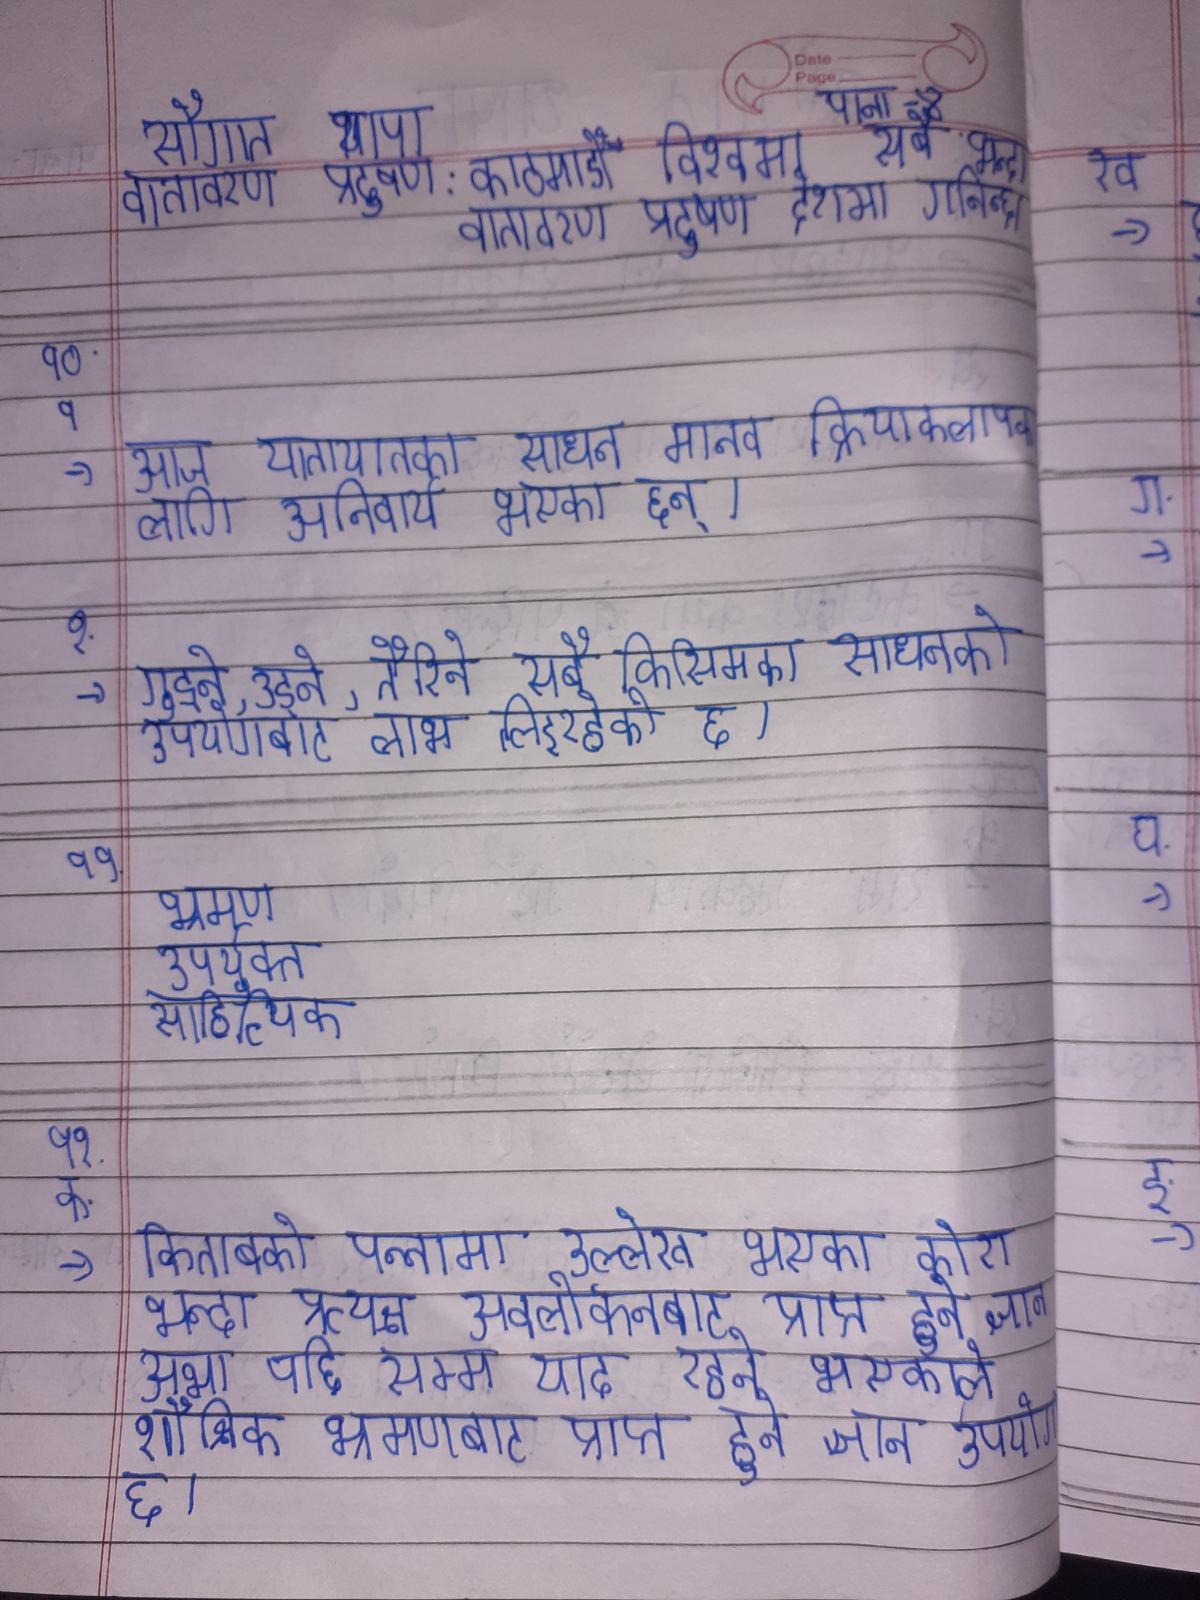 Date
Page
सौगात थापा
पाना
वातावरण प्रदुषण: काठमाडौँ विश्वमा सबै भन्दा
वातावरण प्रदुषण देशमा गनिन्छ
१०.
१
→ आज यातायातका साधन मानव क्रियाकलापका
लागि अनिवार्य भएका छन् ।
२.
→ गुड्ने, उड्ने, तैरिने सबै किसिमका साधनको
उपयोगबाट लाभ लिइरहेको छ ।
११.
भ्रमण
उपर्युक्त
साहित्यिक
१२.
क.
→ किताबको पन्नामा उल्लेख भएका कोरा
भन्दा प्रत्यक्ष अवलोकनबाट प्राप्त हुने ज्ञान
अझा पछि सम्म याद रहने भएकाले
शौक्षिक भ्रमणबाट प्राप्त हुने ज्ञान उपयोग
छ ।
ख
→
ग.
→
घ.
→
ङ
→